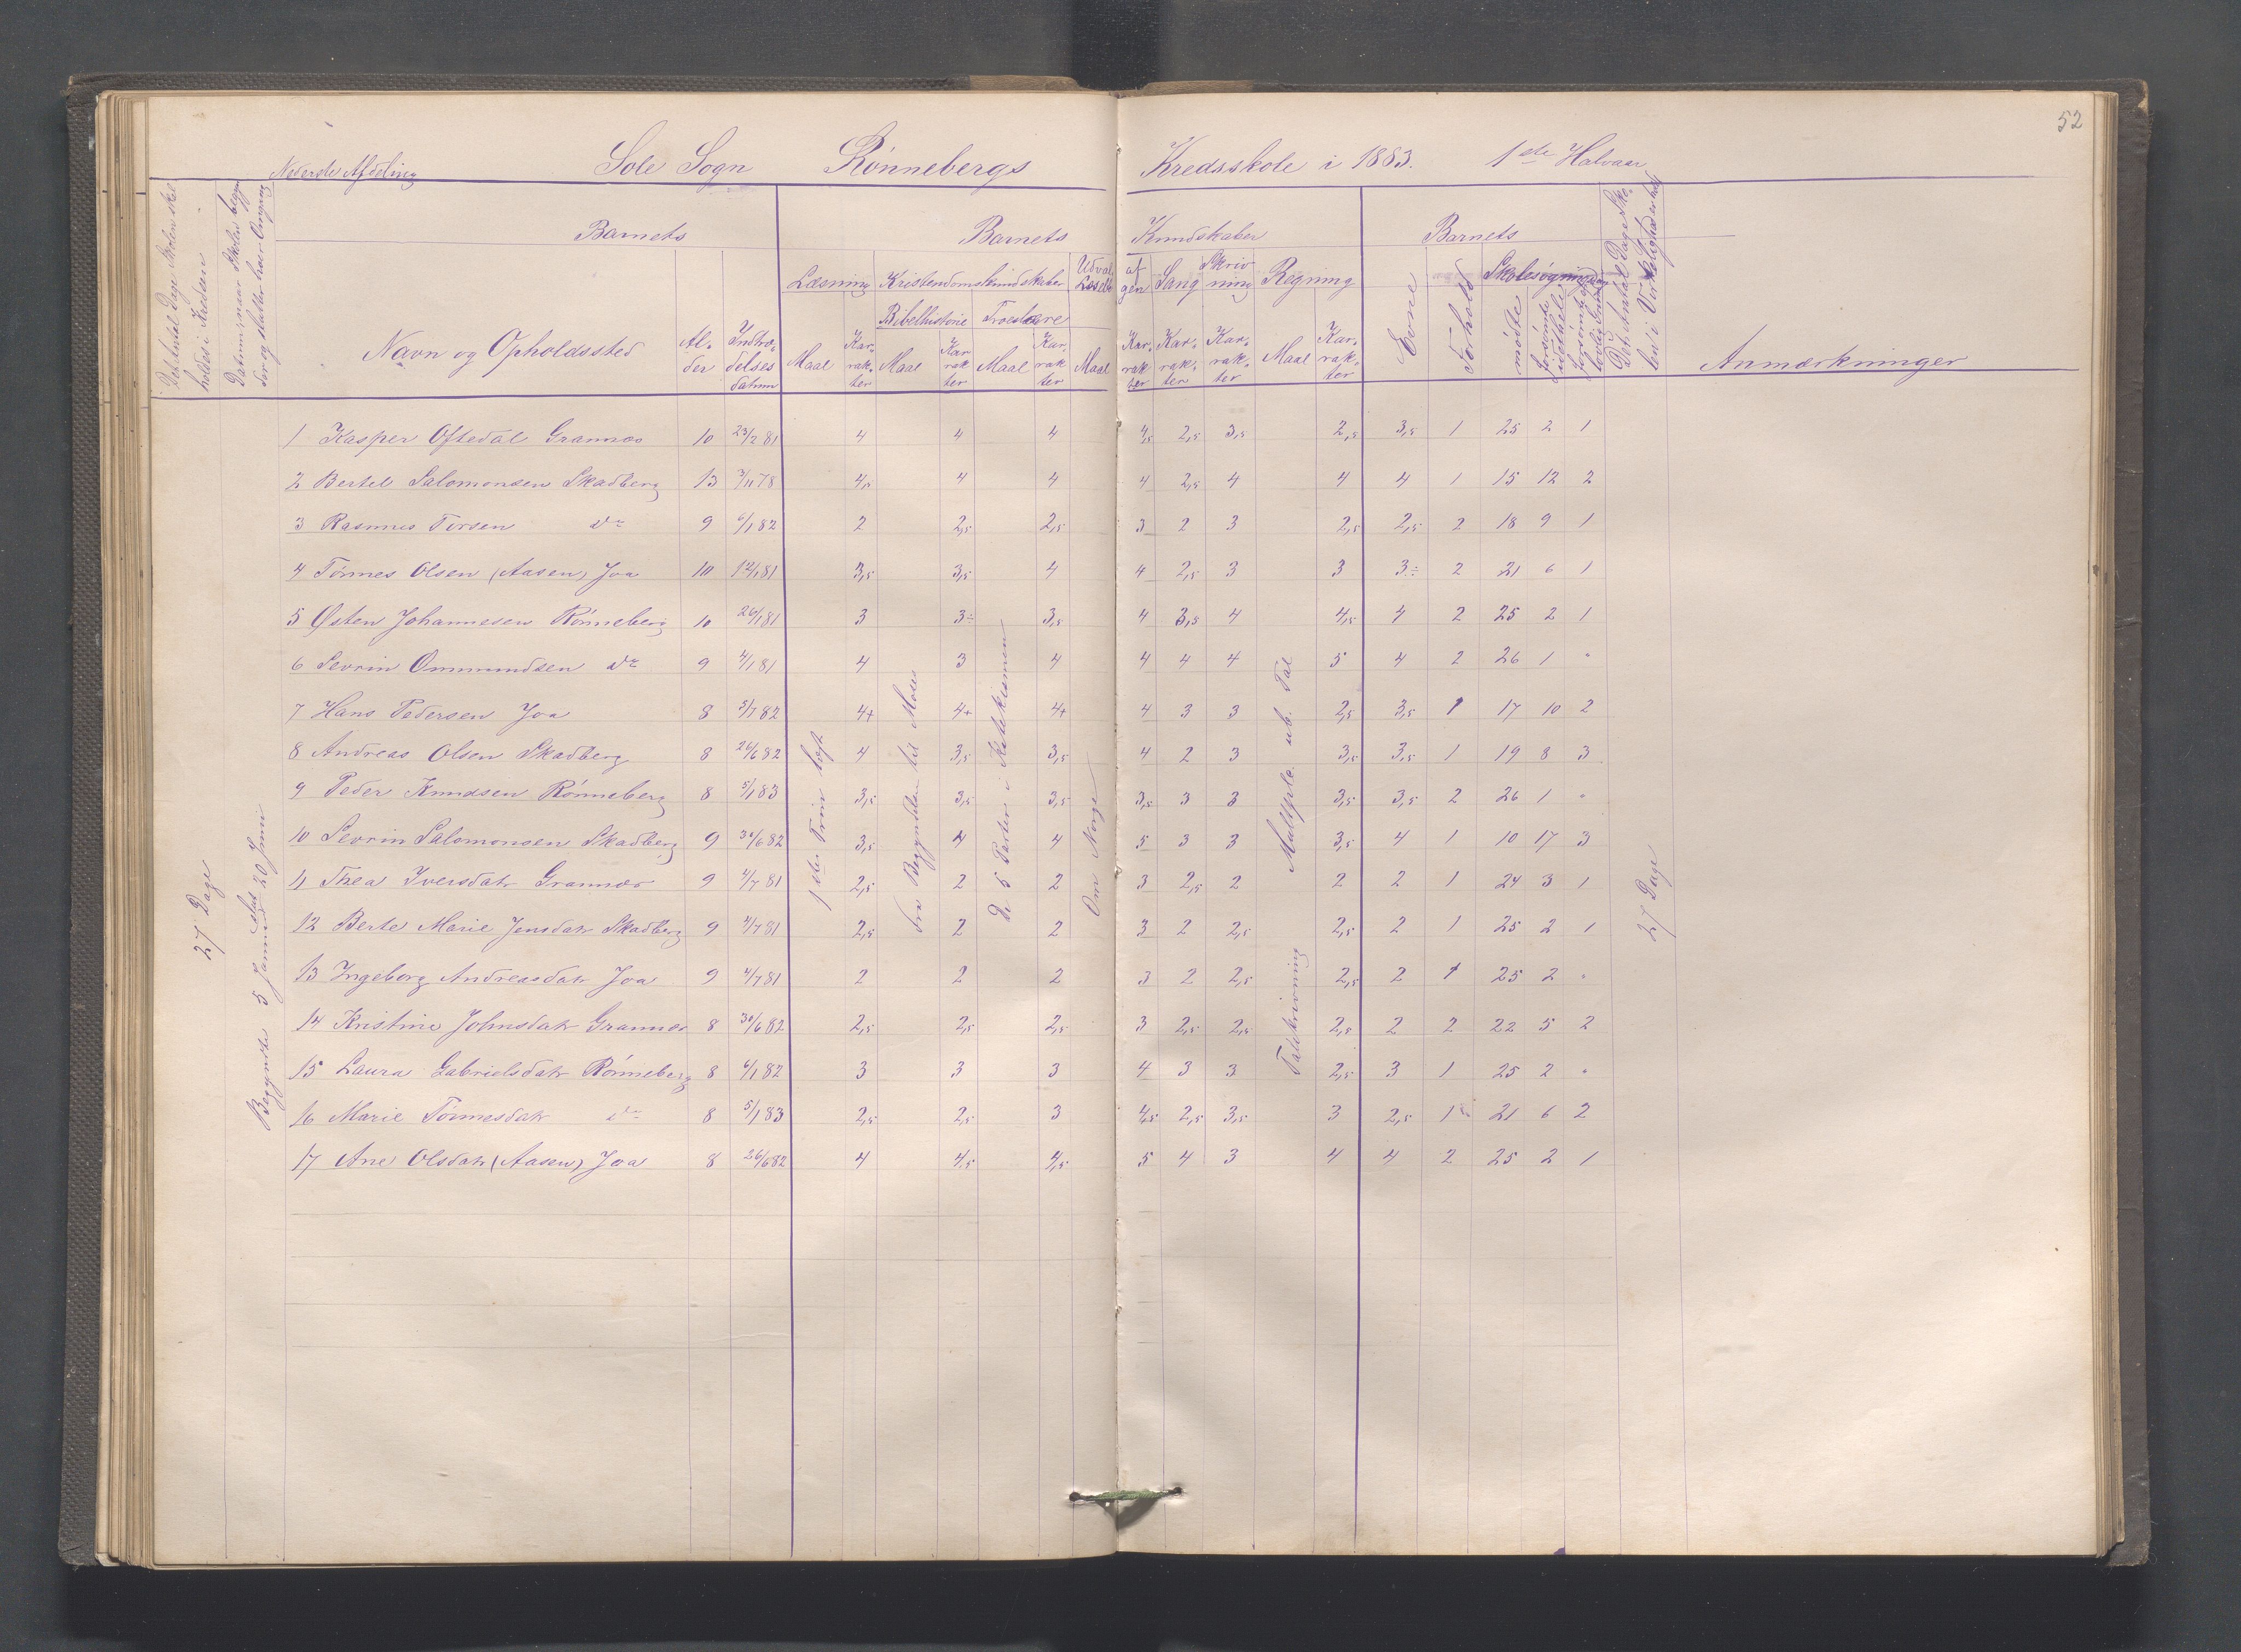 52
Nederste Afdeling Sole Sogn Rønnebergs Kredsskole i 1883. 1ste Halvaar
Det Antal Dage Skolen skal holdes i Kredsen
Datum, naar Skolen begynder og slutter hver Omgang
Barnets Barnets Kundskaber Barnets
Det Antal Dage Skolen i Virkelighed er holdt
Læsning Kristendomskundskaber Udvalg af Læsebogen Sang Skrivning Regning Skolesøgning
Bibelhistorie Troeslære
Navn og Opholdssted Alder Indtrædelsesdatum Maal Karrakter Maal Karrakter Maal Karrakter Maal Karrakter Karrakter Karrakter Maal Karrakter Evne Forhold mødte forsømte Anmærkninger
27 Dage
Begyndte 5 Januar slut 20 Juni
1ste Trin
Fra Begyndelsen til Moses
De 5 Parter i Katekismen
Om Norge
Talskrivning Multipla. ub. Tal
27 Dage
1 Kasper Oftedal Grannes 10 23/2 81 4 4 4 4,5 2,5 3,5 2,5 3,5 1 25 2 1
2 Bertel Salomonsen Skadberg 13 3/11 78 4,5 4 4 4 2,5 4 4 4 1 15 12 2
3 Rasmus Torsen do 9 6/1 82 2 2,5 2,5 3 2 3 2,5 2,5 2 18 9 1
4 Tønnes Olsen (Aasen) Joa 10 12/1 81 3,5 3,5 4 4 2,5 3 3 3÷ 2 21 6 1
5 Østen Johannesen Rønneberg 10 26/1 81 3 3÷ 3,5 4 3,5 4 4,5 4 2 25 2 1
6 Sevrin Ommundsen do 9 4/1 81 4 3 4 4 4 4 5 4 2 26 1 "
7 Hans Pedersen Joa 8 3/7 82 4+ 4+ 4+ 4 3 3 2,5 3,5 1 17 10 2
8 Andreas Olsen Skadberg 8 26/6 82 4 3,5 3,5 4 2 3 3,5 3,5 1 19 8 3
9 Peder Knudsen Rønneberg 8 5/1 83 3,5 3,5 3,5 3,5 3 3 3,5 3,5 2 26 1 "
10 Sevrin Salomonsen Skadberg 9 30/6 82 3,5 4 4 5 3 3 3,5 4 1 10 17 3
11 Thea Iversdatr Grannes 9 4/7 81 2,5 2 2 3 2,5 2 2 2 1 24 3 1
12 Berte Marie Jensdatr Skadberg 9 4/7 81 2,5 2 2 3 2 2,5 2,5 2 1 25 2 1
13 Ingeborg Andreasdatr Joa 9 4/7 81 2 2 2 3 2 2,5 2,5 2 1 25 2 "
14 Kristine Johnsdatr Grannes 8 30/6 82 2,5 2,5 2,5 3 2,5 2,5 2,5 2 2 22 5 2
15 Laura Gabrielsdatr Rønneberg 8 6/1 82 3 3 3 4 3 3 2,5 3 1 25 2 "
16 Marie Tønnesdatr do 8 5/1 83 2,5 2,5 3 4,5 2,5 3,5 3 2,5 1 21 6 2
17 Ane Olsdatr (Aasen) Joa 8 26/6 82 4 4,5 4,5 5 4 3 4 4 2 25 2 1